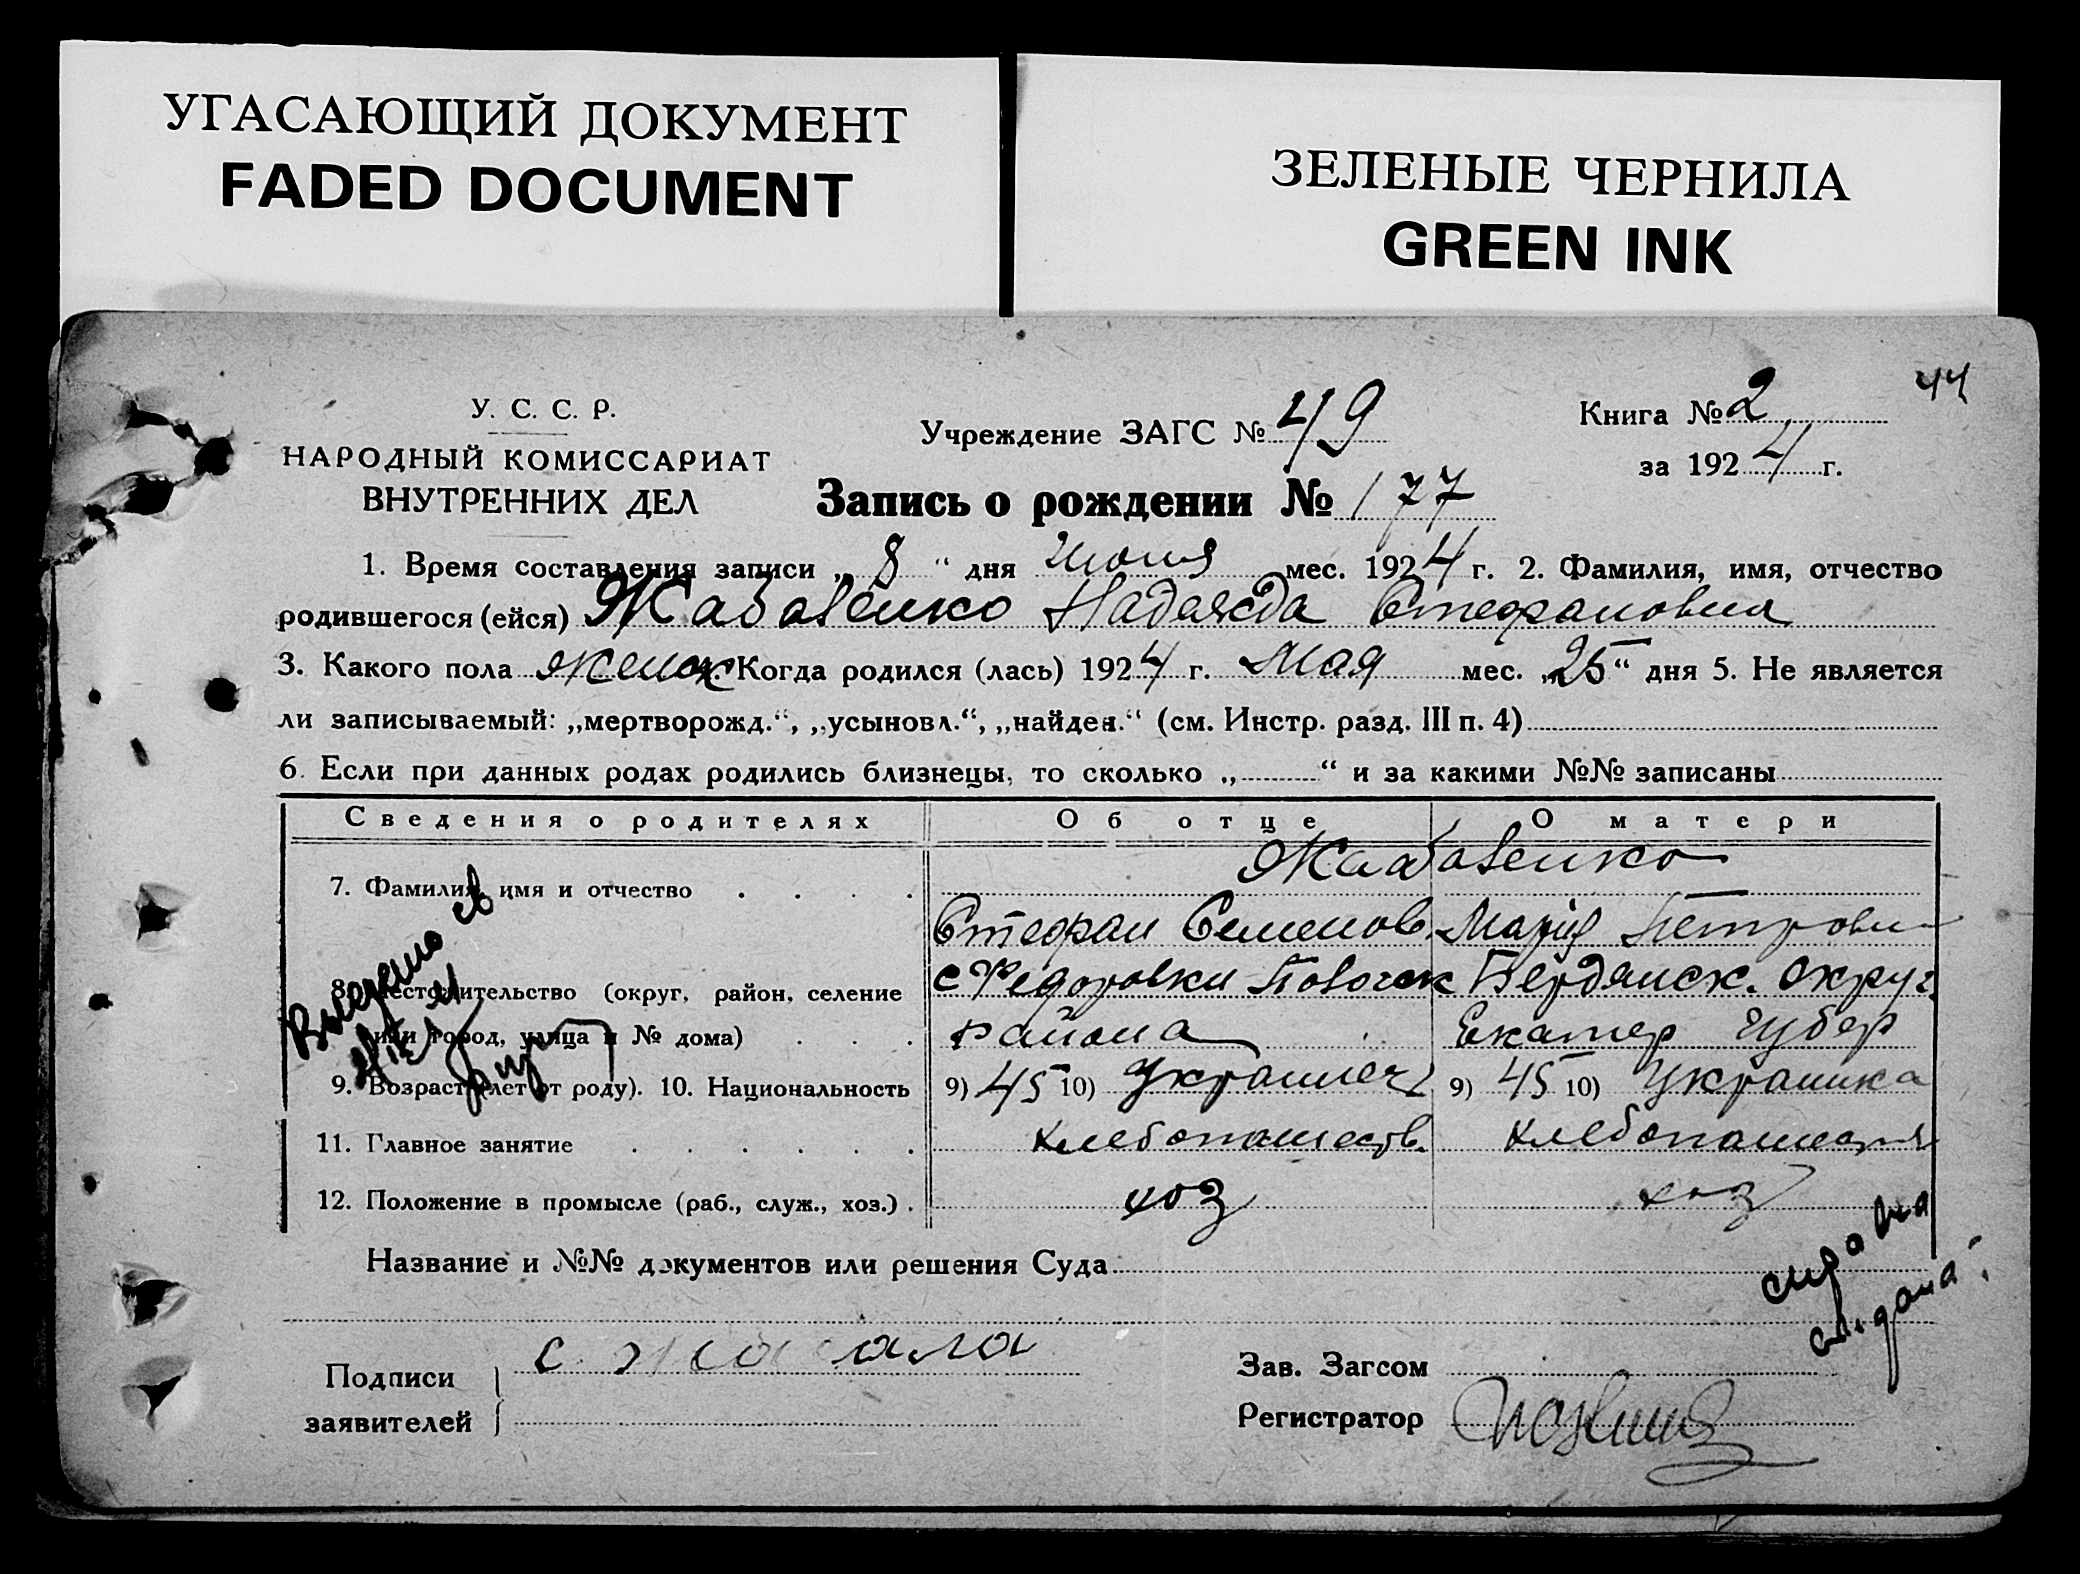 УГАСАЮЩИЙ ДОКУМЕНТ
FADED DOCUMENT
ЗЕЛЕНЫЕ ЧЕРНИЛА
GREEN INK
44
У. С. С. Р.
НАРОДНЫЙ КОМИССАРИАТ
ВНУТРЕННИХ ДЕЛ
Учреждение ЗАГС № 49
Книга № 2
за 1924 г.
Запись о рождении № 177
1. Время составления записи „ 8 “ дня Июня мес. 1924 г. 2. Фамилия, имя, отчество
родившегося (ейся) Жабовенко Надежда Стефановна
3. Какого пола женск 4. Когда родился (лась) 1924 г. Мая мес. „25“ дня 5. Не является
ли записываемый: „мертворожд.“, „усыновл.“, „найден.“ (см. Инстр. разд. III п. 4)
6. Если при данных родах родились близнецы, то сколько „ “ и за какими №№ записаны
Сведения о родителях Об отце О матери
Жабовенко
7. Фамилия, имя и отчество
Стефан Семенов. Мария Петровн
8. Местожительство (округ, район, селение с Федоровки Бердянск. округ.
или город, улица и № дома) района Екатер Губер
9. Возраст (лет от роду). 10. Национальность 9) 45 10) Украинец 9) 45 10) Украинка
11. Главное занятие хлебопашеств.
12. Положение в промысле (раб., служ., хоз.) хоз хоз
Название и №№ документов или решения Суда
Подписи
заявителей
Зав. Загсом
Регистратор